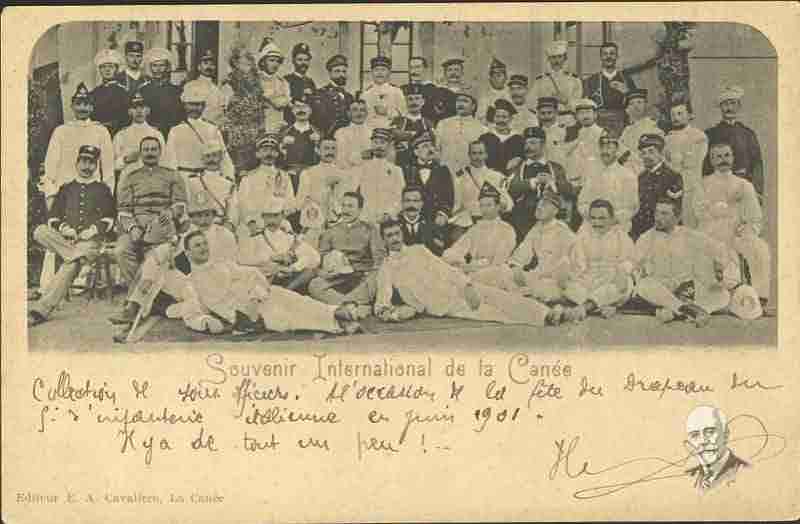 Souvenir International de la Canée
Collection de sous officiers. A l'occasion de la fête du Drapeau du
5e d'infanterie italienne en juin 1901.
Il y a de tout un peu ! ..
Editeur E. A. Cavaliero, La Canée